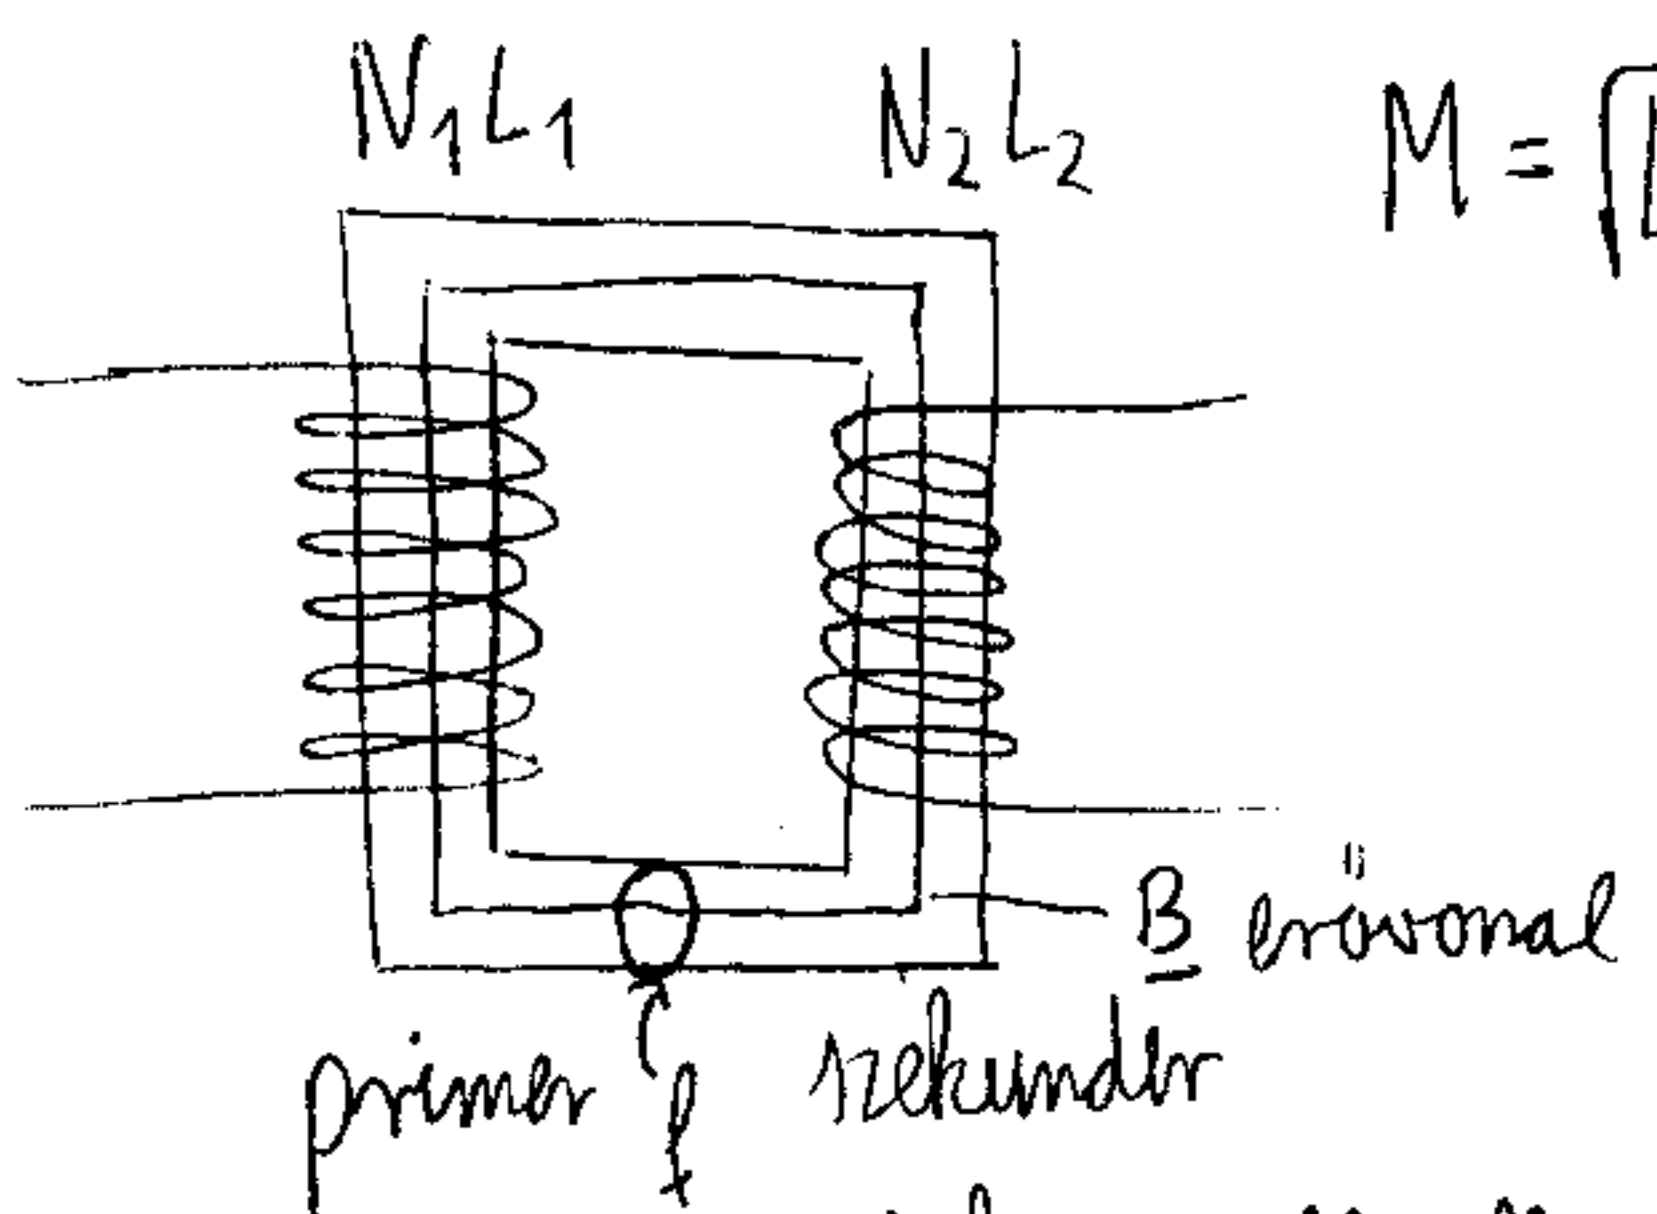 N₁ L₁ N₂ L₂ M = √
B erővonal
primer f szekunder